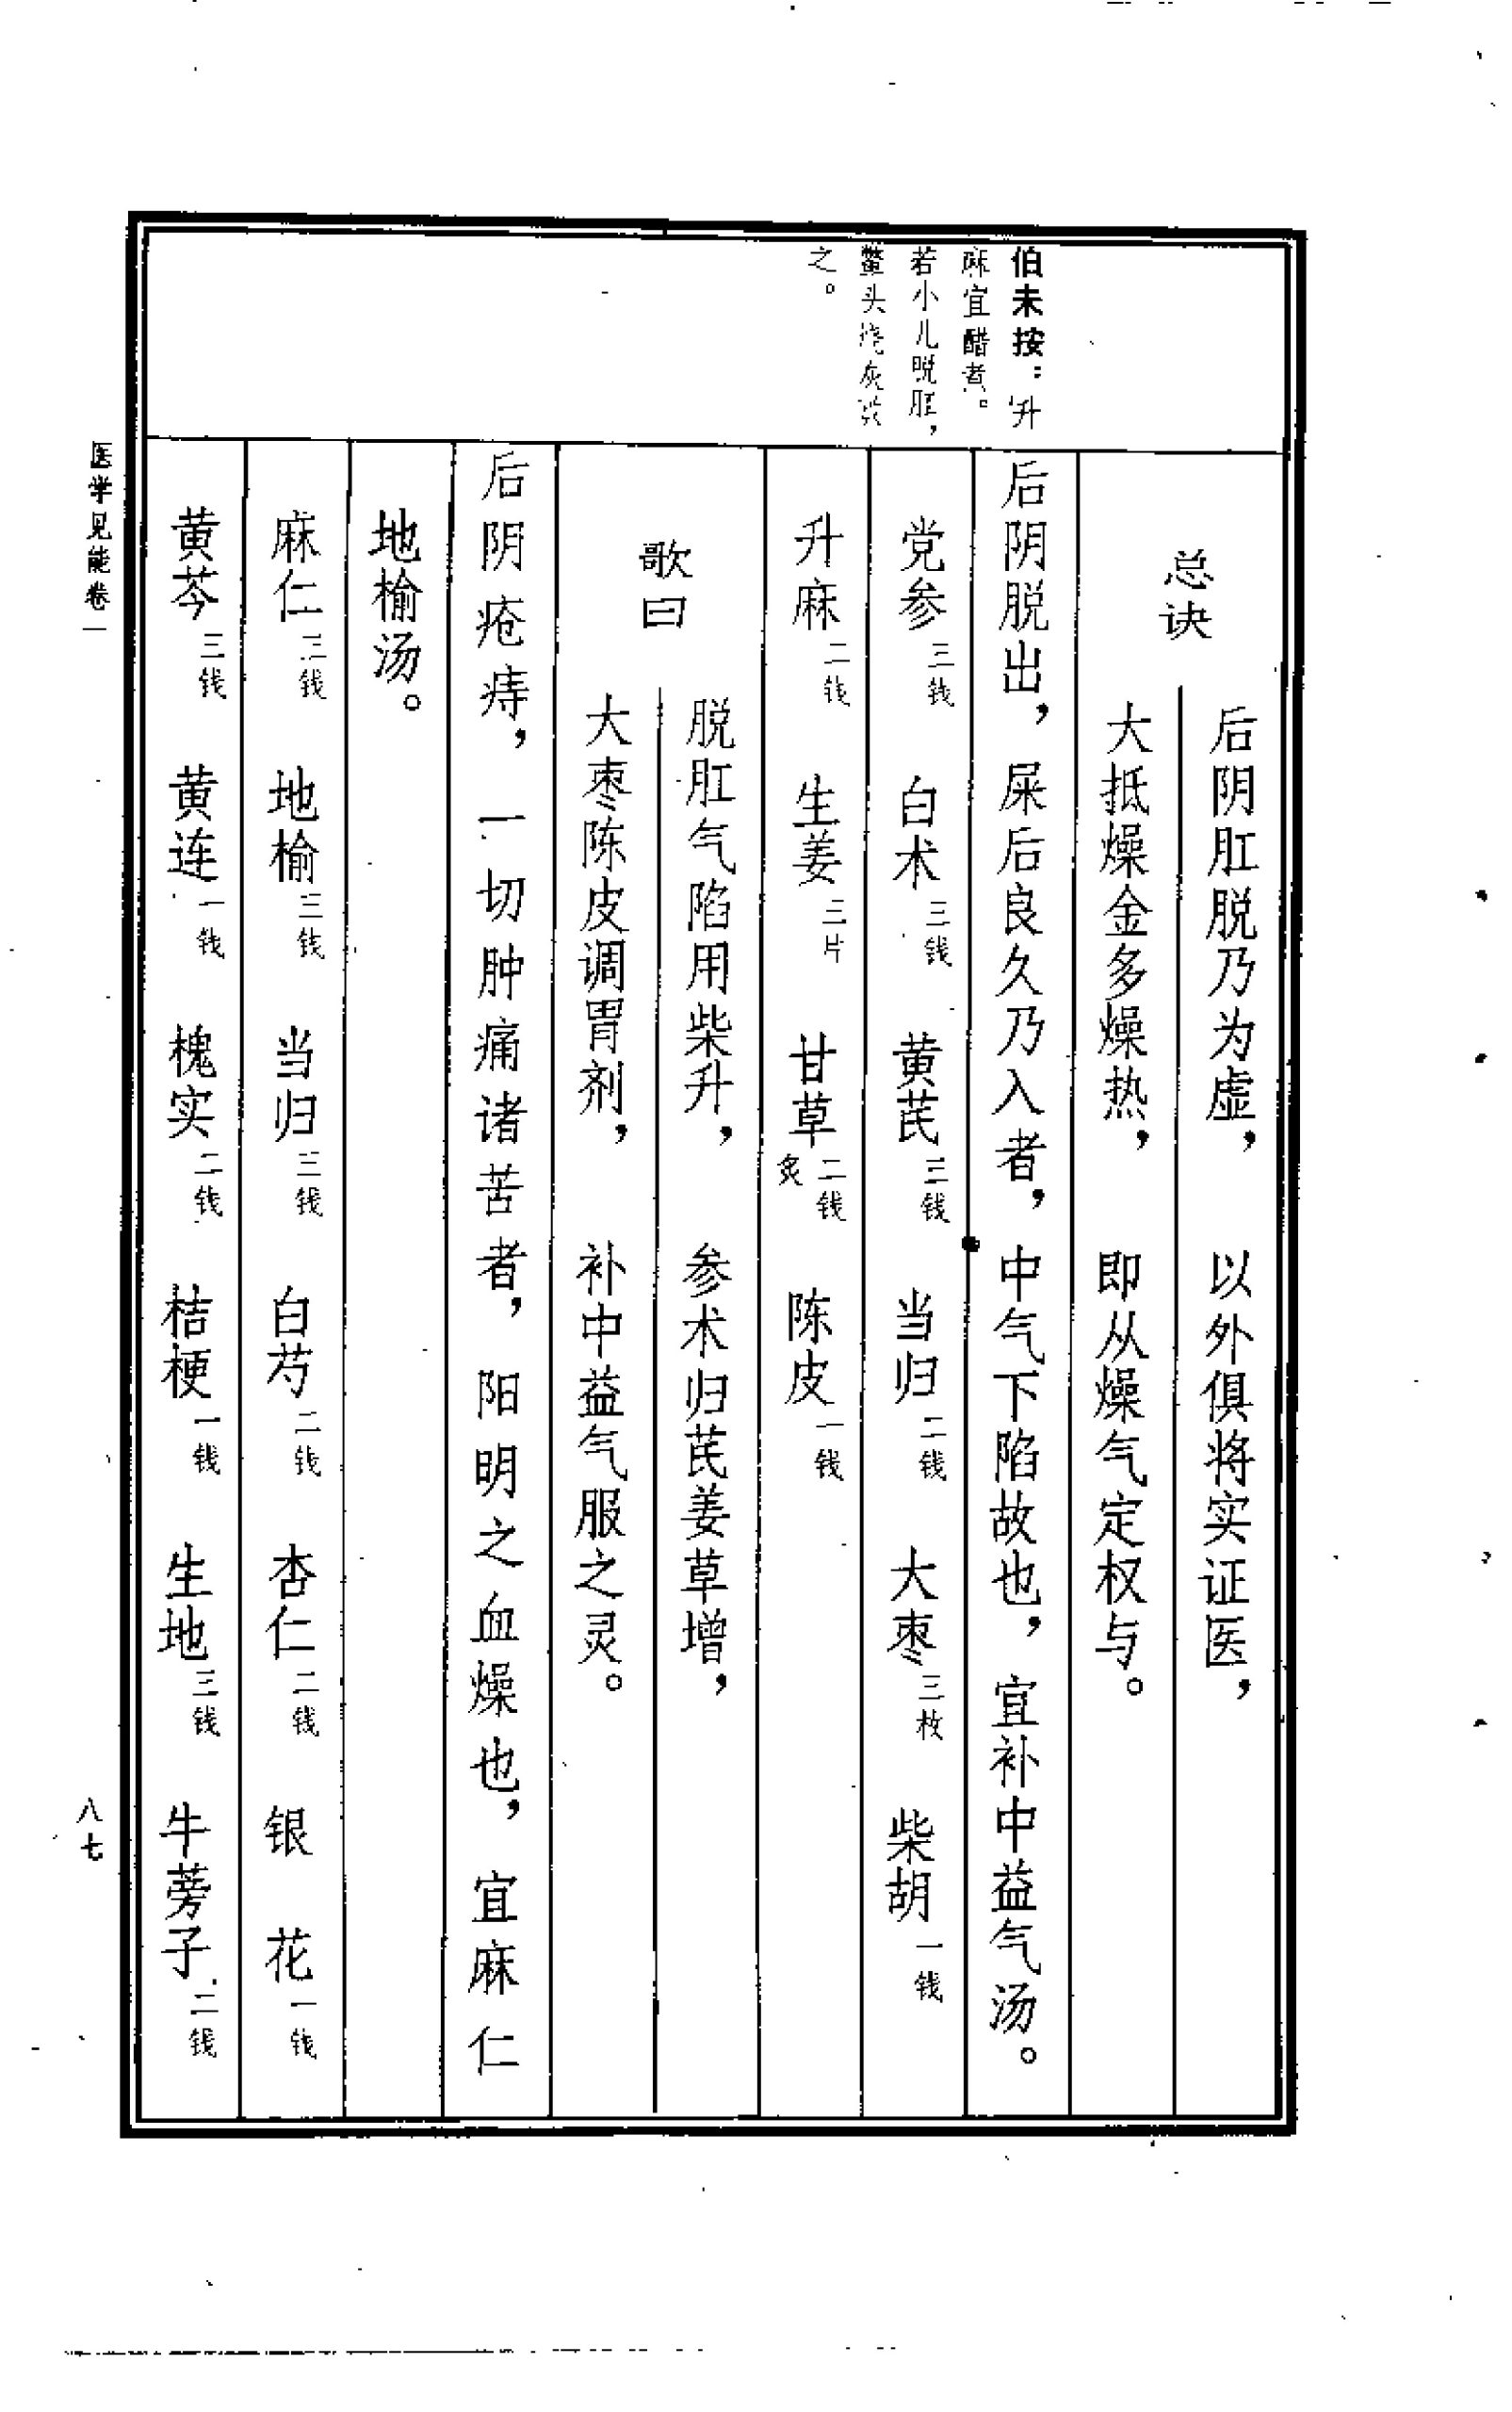 伯未按：升
麻宜醋煮。
若小儿脱肛，
鳖头烧灰
之。
总诀
后阴肛脱乃为虚，以外俱将实证医，
大抵燥金多燥热，即从燥气定权与。
后阴脱出，屎后良久乃入者，中气下陷故也，宜补中益气汤。
党参三钱 白术三钱 黄芪三钱 当归二钱 大枣三枚 柴胡一钱
升麻二钱 生姜三片 甘草炙二钱 陈皮一钱
歌曰
脱肛气陷用柴升，参术归芪姜草增，
大枣陈皮调胃剂，补中益气服之灵。
后阴疮痔，一切肿痛诸苦者，阳明之血燥也，宜麻仁
地榆汤。
麻仁三钱 地榆三钱 当归三钱 白芍二钱 杏仁二钱 银花一钱
黄芩三钱 黄连一钱 槐实二钱 桔梗一钱 生地三钱 牛蒡子二钱
医学见能卷一
八七